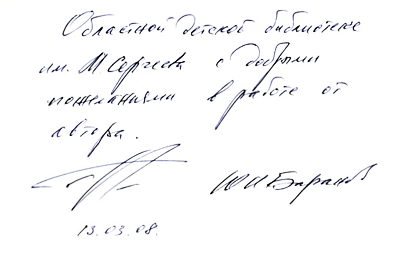 Областной детской библиотеке
им. М Сергеева с добрыми
пожеланиями в работе от
автора.
Ю И Баранов
13.03.08.